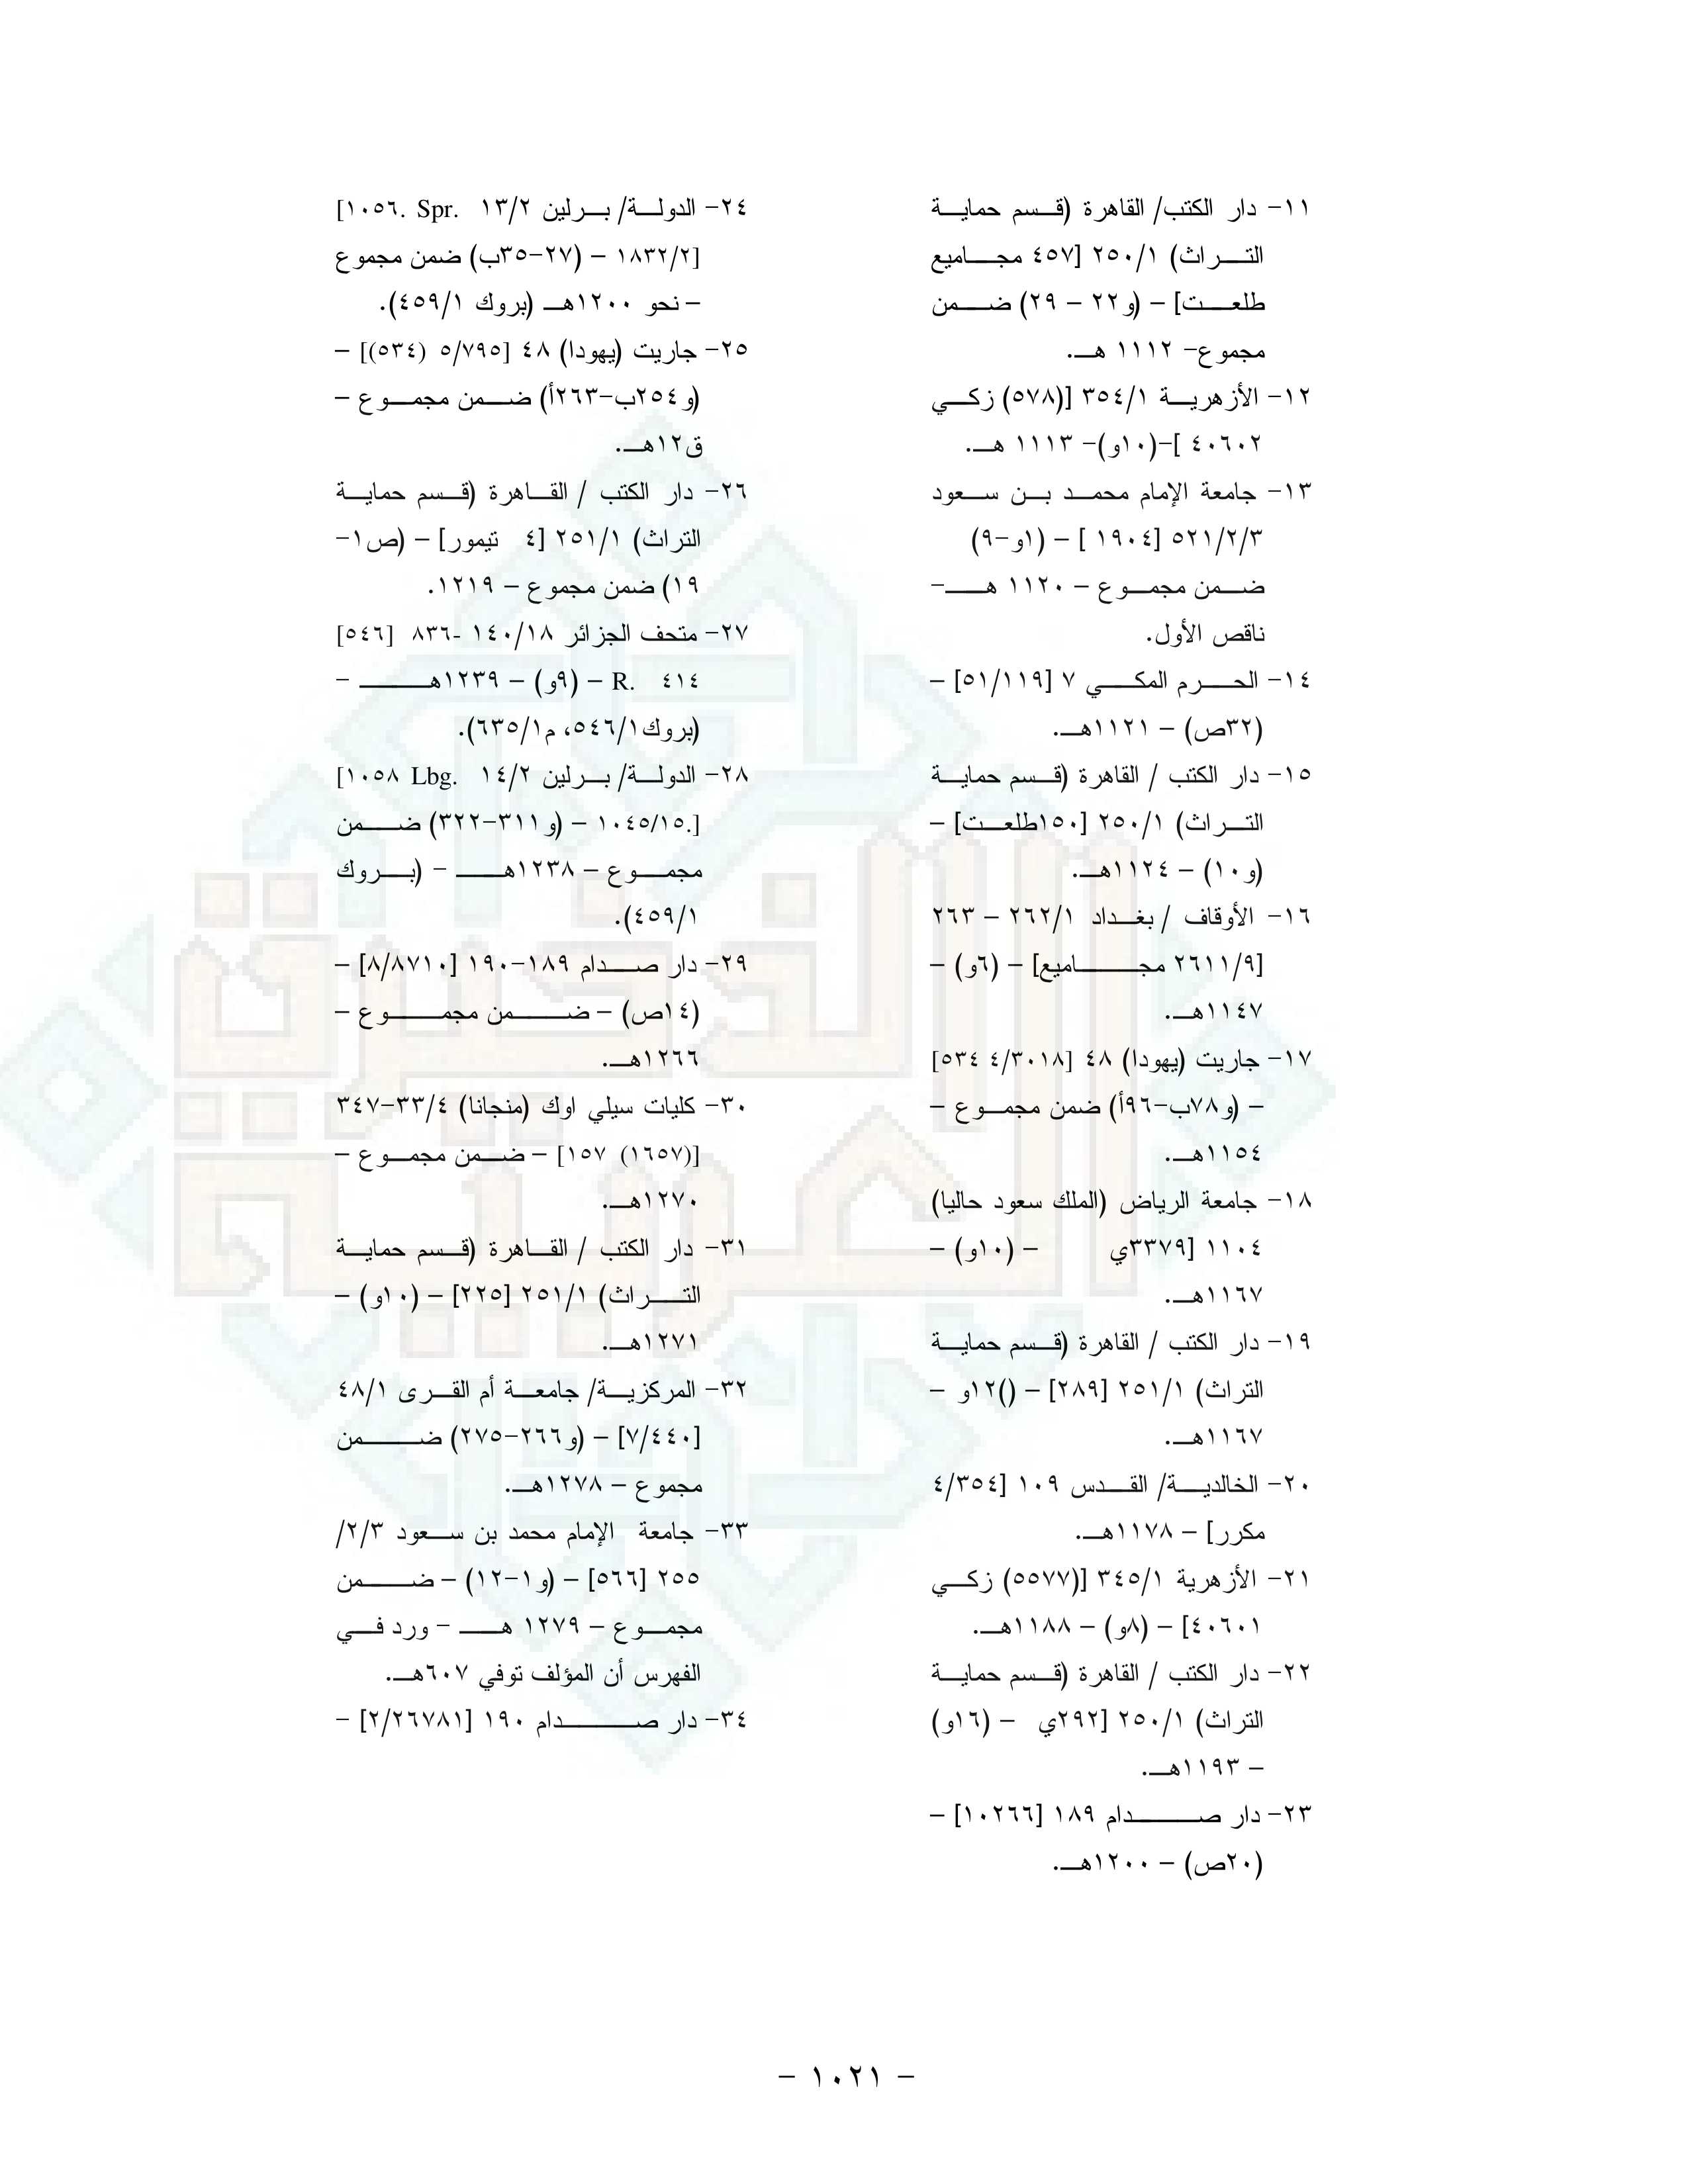 ١١- دار الكتب/ القاهرة (قسم حماية
التراث) ٢٥٠/١ [٤٥٧ مجاميع
طلعت] – (و٢٢ – ٢٩) ضمن
مجموع- ١١١٢ هـ.
١٢- الأزهرية ٣٥٤/١ [(٥٧٨) زكي
٤٠٦٠٢ ]-(١٠و)- ١١١٣ هـ.
١٣- جامعة الإمام محمد بن سعود
٥٢١/٢/٣ [١٩٠٤ ] – (١و-٩)
ضمن مجموع – ١١٢٠ هـ-
ناقص الأول.
١٤- الحرم المكي ٧ [٥١/١١٩] –
(٣٢ص) – ١١٢١هـ.
١٥- دار الكتب / القاهرة (قسم حماية
التراث) ٢٥٠/١ [١٥٠طلعت] –
(و١٠) – ١١٢٤هـ.
١٦- الأوقاف / بغداد ٢٦٢/١ – ٢٦٣
[٢٦١١/٩ مجاميع] – (٦و) –
١١٤٧هـ.
١٧- جاريت (يهودا) ٤٨ [٤/٣٠١٨ ٥٣٤]
– (و٧٨ب-٩٦أ) ضمن مجموع –
١١٥٤هـ.
١٨- جامعة الرياض (الملك سعود حاليا)
١١٠٤ [٣٣٧٩ي – (١٠و) –
١١٦٧هـ.
١٩- دار الكتب / القاهرة (قسم حماية
التراث) ٢٥١/١ [٢٨٩] – ()١٢و –
١١٦٧هـ.
٢٠- الخالدية/ القدس ١٠٩ [٤/٣٥٤
مكرر] – ١١٧٨هـ.
٢١- الأزهرية ٣٤٥/١ [(٥٥٧٧) زكي
٤٠٦٠١] – (٨و) – ١١٨٨هـ.
٢٢- دار الكتب / القاهرة (قسم حماية
التراث) ٢٥٠/١ [٢٩٢ي – (١٦و)
– ١١٩٣هـ.
٢٣- دار صدام ١٨٩ [١٠٢٦٦] –
(٢٠ص) – ١٢٠٠هـ.
٢٤- الدولة/ برلين ١٣/٢ .Spr .١٠٥٦]
[١٨٣٢/٢ – (٢٧-٣٥ب) ضمن مجموع
– نحو ١٢٠٠هـ (بروك ٤٥٩/١).
٢٥- جاريت (يهودا) ٤٨ [٥/٧٩٥ (٥٣٤)] –
(و٢٥٤ب-٢٦٣أ) ضمن مجموع –
ق١٢هـ.
٢٦- دار الكتب / القاهرة (قسم حماية
التراث) ٢٥١/١ [٤ تيمور] – (ص١-
١٩) ضمن مجموع – ١٢١٩.
٢٧- متحف الجزائر ١٤٠/١٨ -٨٣٦ [٥٤٦]
٤١٤ .R – (٩و) – ١٢٣٩هـ –
(بروك٥٤٦/١، م٦٣٥/١).
٢٨- الدولة/ برلين ١٤/٢ .Lbg ١٠٥٨]
[.١٠٤٥/١٥ – (و٣١١-٣٢٢) ضمن
مجموع – ١٢٣٨هـ – (بروك
٤٥٩/١).
٢٩- دار صدام ١٨٩-١٩٠ [٨/٨٧١٠] –
(١٤ص) – ضمن مجموع –
١٢٦٦هـ.
٣٠- كليات سيلي اوك (منجانا) ٣٣/٤-٣٤٧
[(١٦٥٧) ١٥٧] – ضمن مجموع –
١٢٧٠هـ.
٣١- دار الكتب / القاهرة (قسم حماية
التراث) ٢٥١/١ [٢٢٥] – (١٠و) –
١٢٧١هـ.
٣٢- المركزية/ جامعة أم القرى ٤٨/١
[٧/٤٤٠] – (و٢٦٦-٢٧٥) ضمن
مجموع – ١٢٧٨هـ.
٣٣- جامعة الإمام محمد بن سعود ٢/٣/
٢٥٥ [٥٦٦] – (و١-١٢) – ضمن
مجموع – ١٢٧٩ هـ – ورد في
الفهرس أن المؤلف توفي ٦٠٧هـ.
٣٤- دار صدام ١٩٠ [٢/٢٦٧٨١] –
- ١٠٢١ -
الذخيرة
العربية